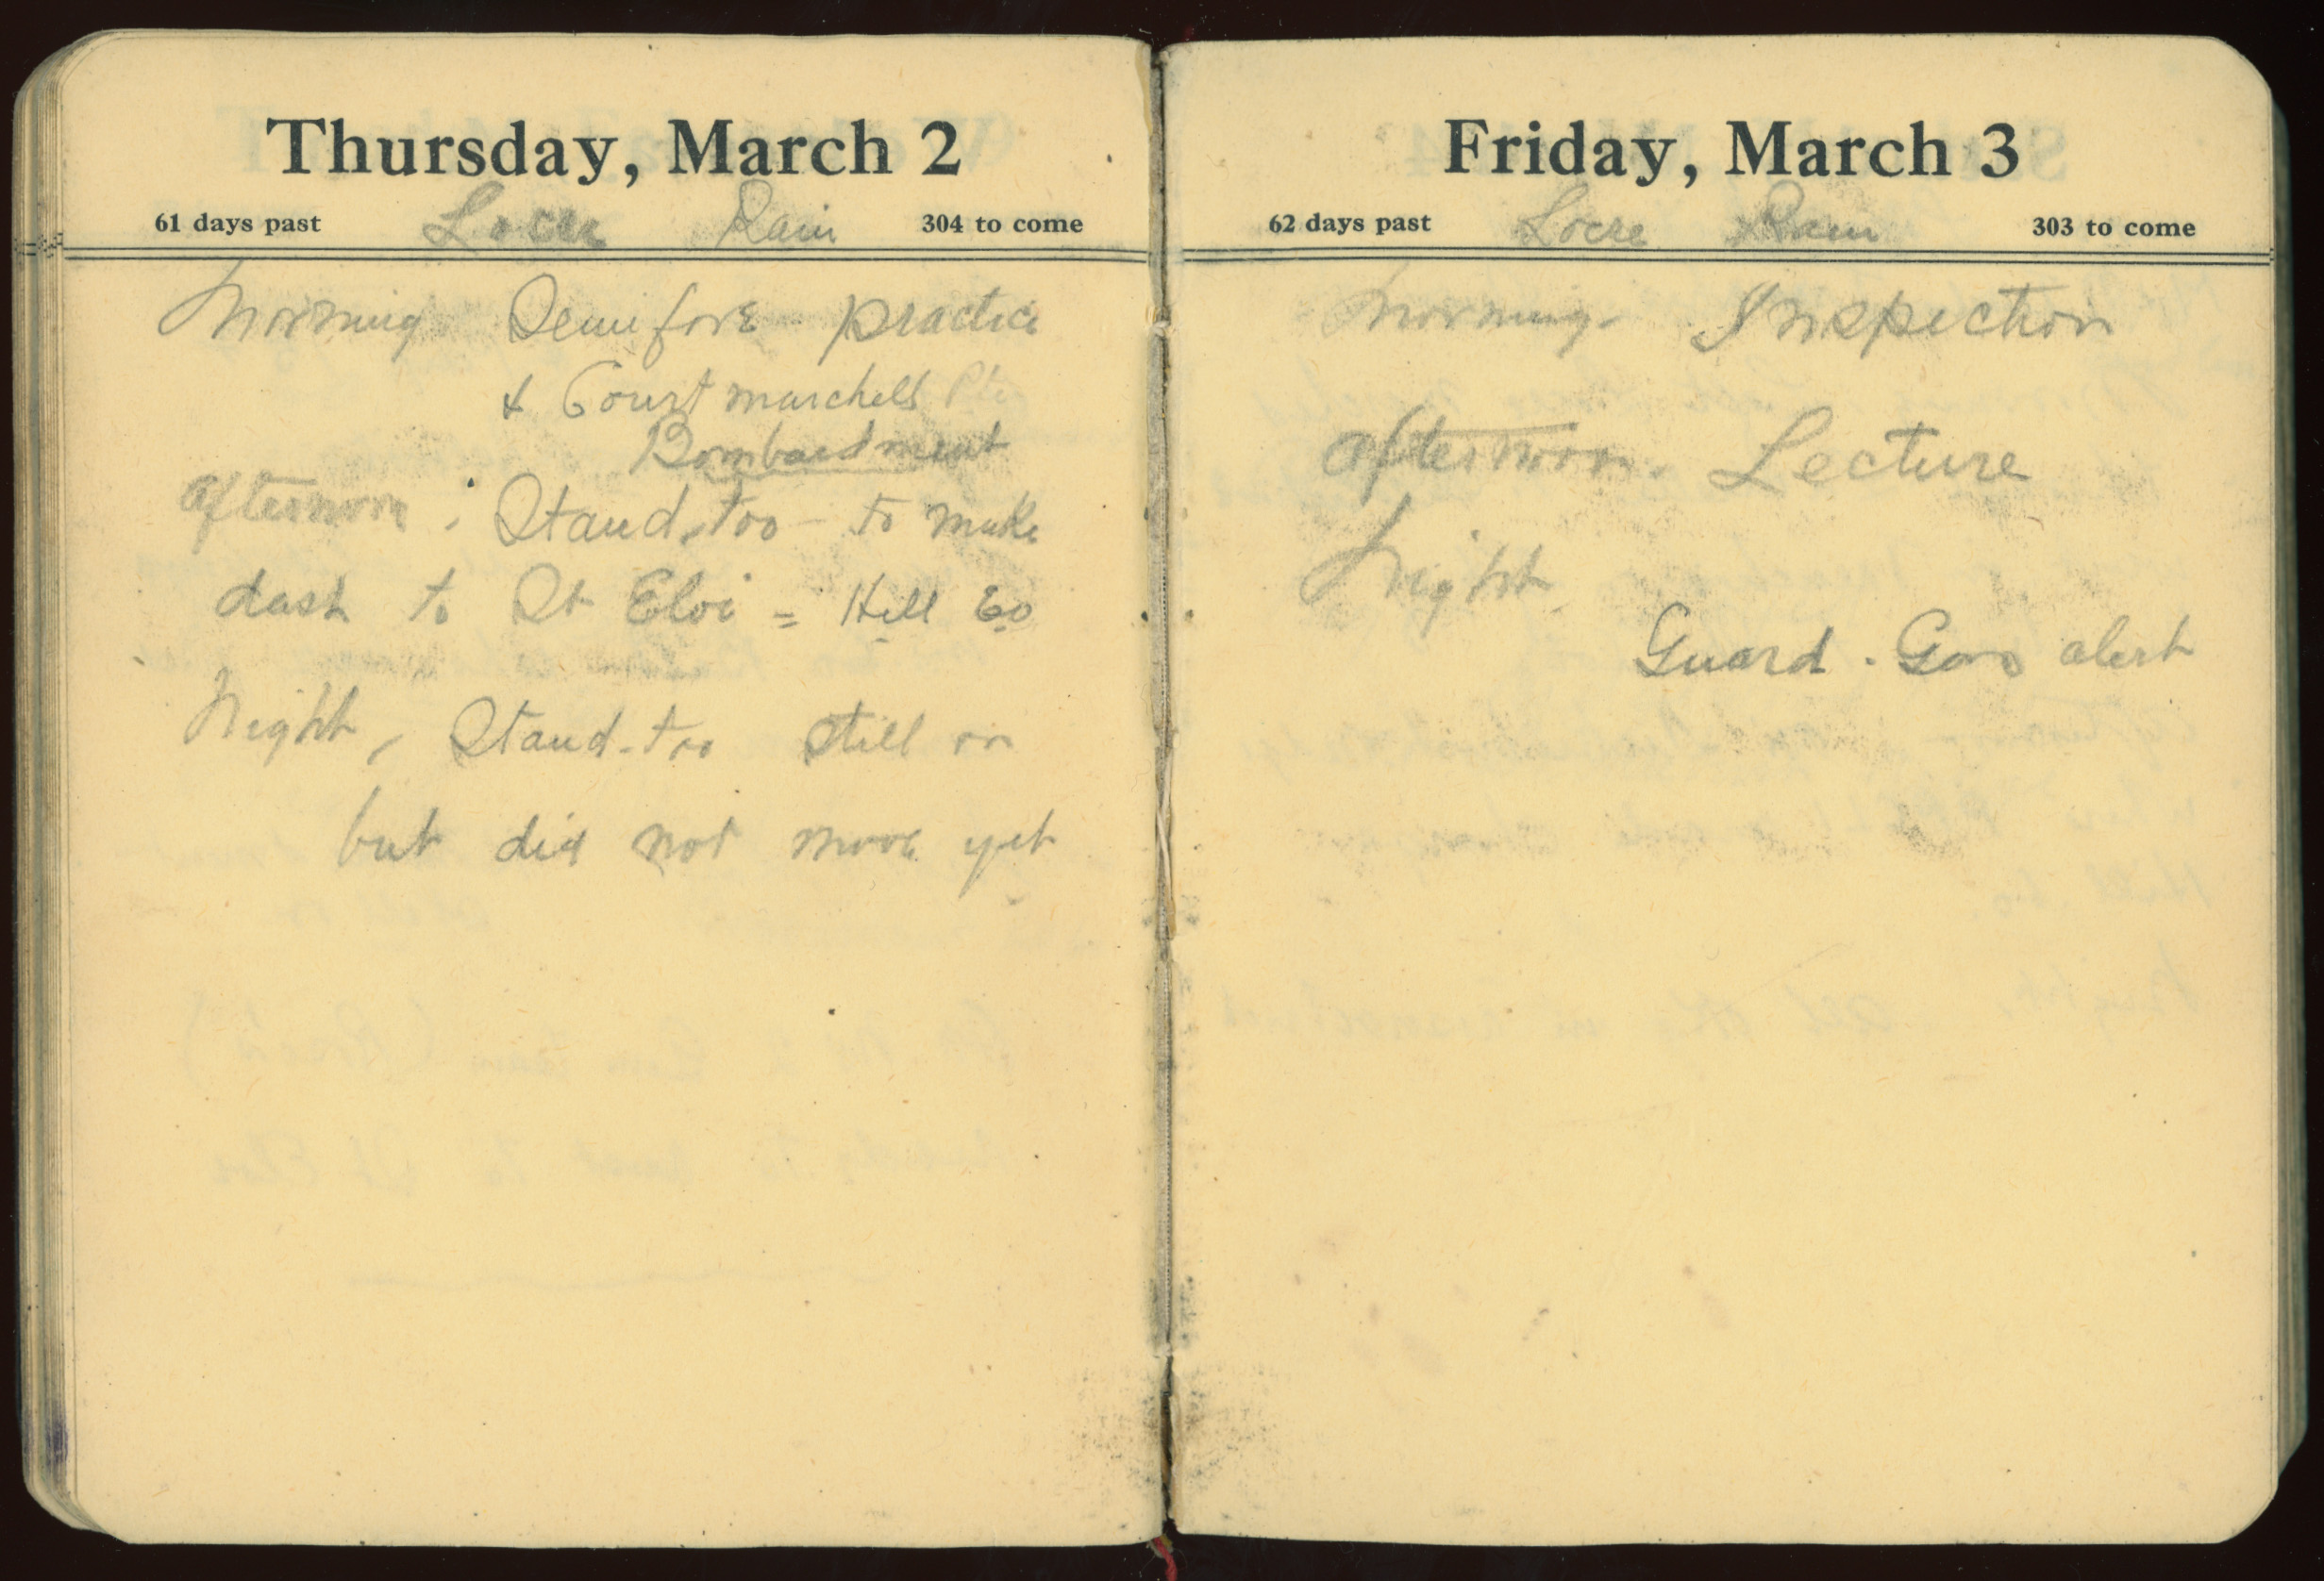 Thursday, March 2
61 days past Locre Rain 304 to come
Morning Semifore practice
& Court marchells
Bombardment
afternoon : Stand-too - to make
dash to St Eloi = Hill 60
Night, Stand-too still on
but did not move yet
Friday, March 3
62 days past Locre Rain 303 to come
Morning - Inspection
afternoon. Lecture
Night
Guard . Gas alert